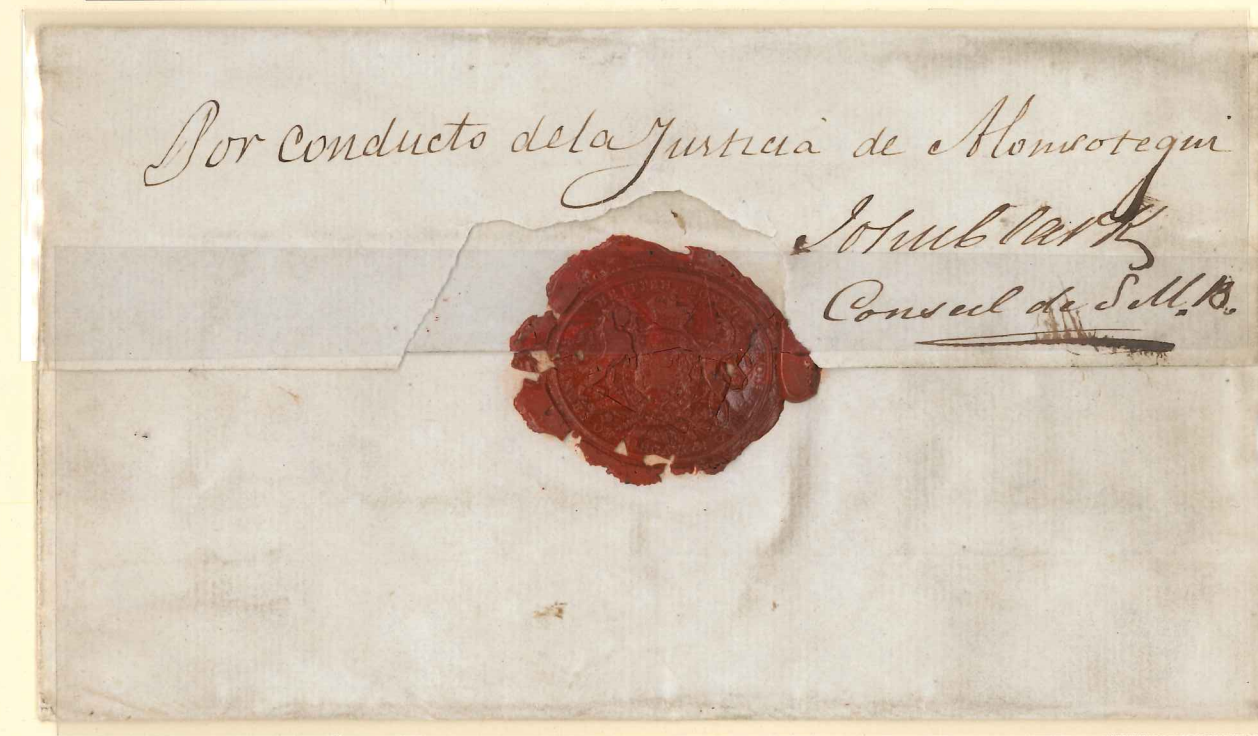 Por conducto dela Justicia de Alonsotegui
John Clark
Consul de S.M.B.